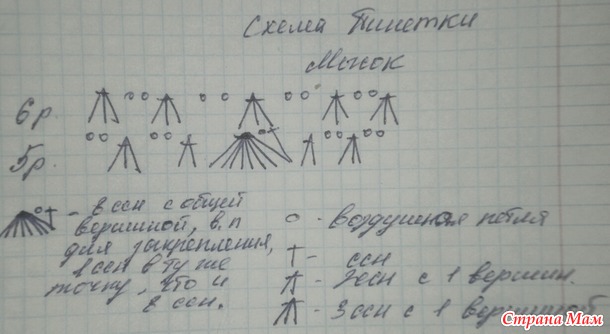 Схема Пинетки
Мысок
6 р.
5 р.
- 8 ссн с общей
вершиной, в.п
для закрепления,
1 ссн в ту же
точку, что и
8 ссн.
о - воздушная петля
† - ссн
- 2ссн с 1 вершин.
- 3 ссн с 1 вершиной
Страна Мам